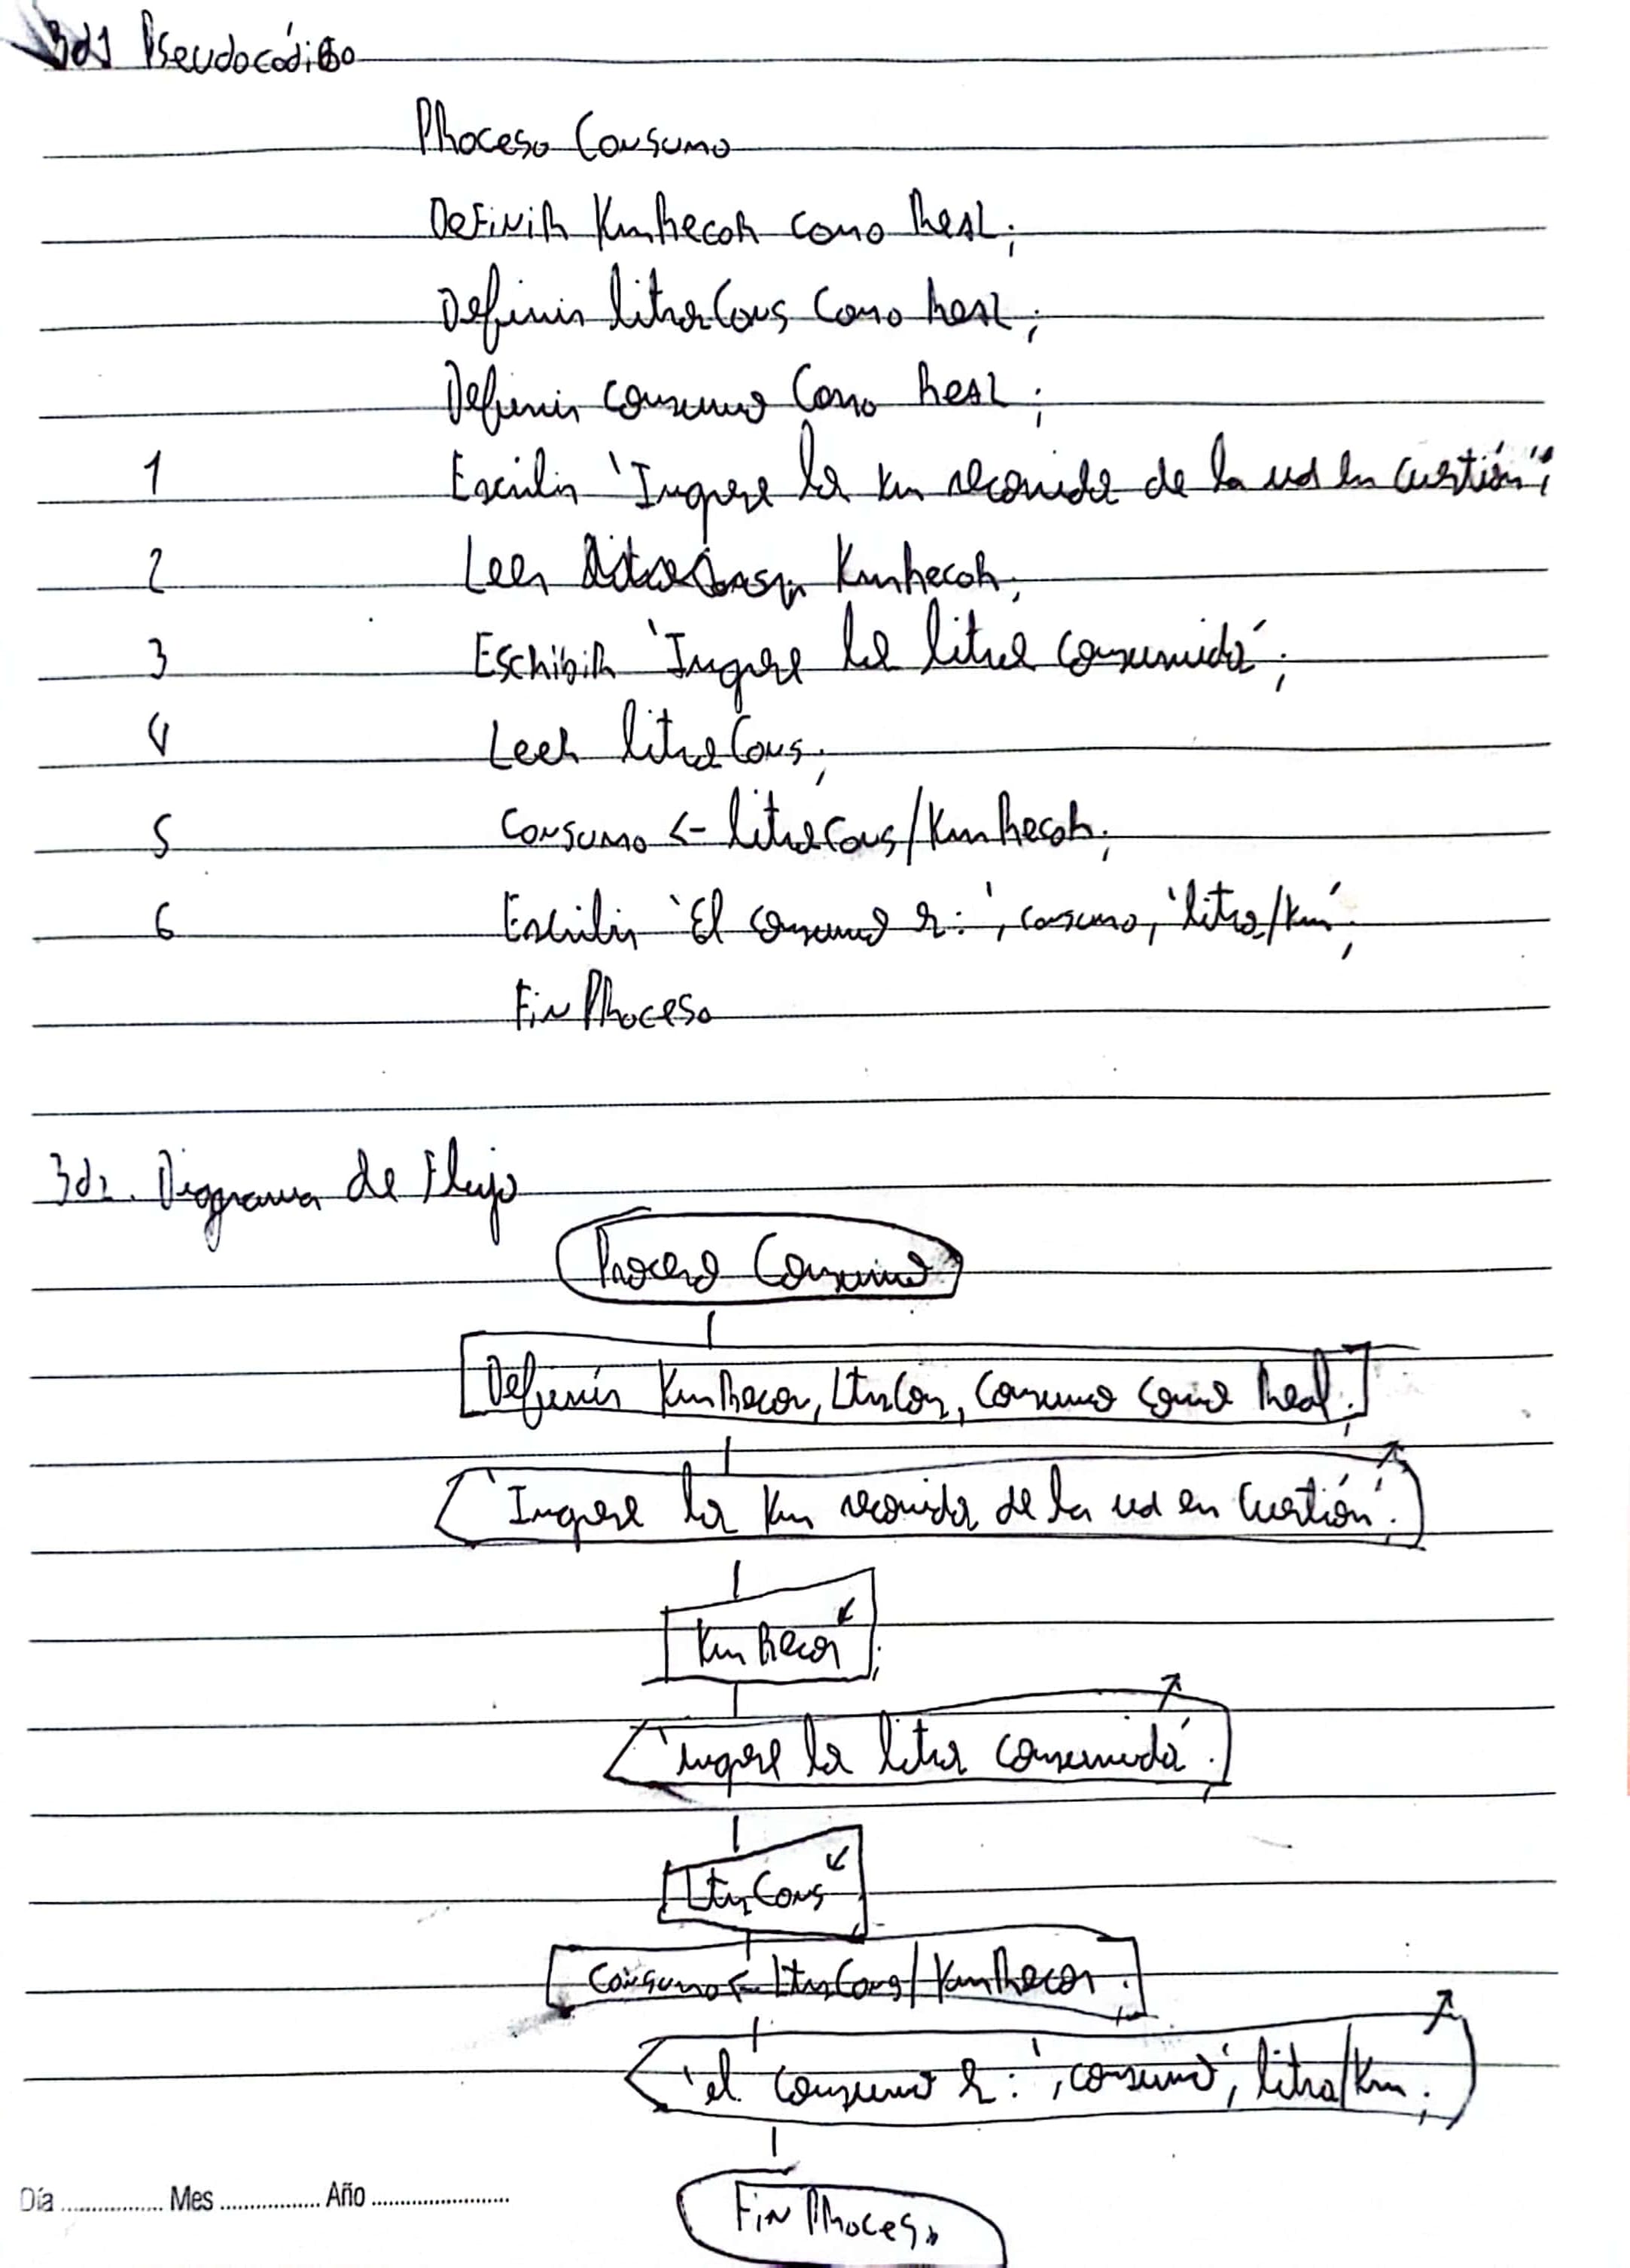 3d1 Pseudocódigo
Proceso Consumo
Definir KmRecor como Real;
Definir litrosCons como real;
Definir consumo como Real;
1 Escribir 'Ingrese los km recorridos de la ud en cuestión';
2 Leer KmRecor;
3 Escribir 'Ingrese los litros consumidos';
4 Leer litrosCons;
5 Consumo <- litrosCons/KmRecor;
6 Escribir 'El consumo es:', consumo, 'litros/km';
Fin Proceso
3d2. Diagrama de Flujo
Proceso Consumo
Definir KmRecor, LtrsCons, Consumo como Real;
'Ingrese los Km recorridos de la ud en cuestión';
KmRecor;
'ingrese los litros consumidos';
LtrsCons
Consumo <- LtrsCons/KmRecor;
'el consumo es:', consumo', litros/Km;
Fin Proceso
Día ................ Mes ................ Año ......................